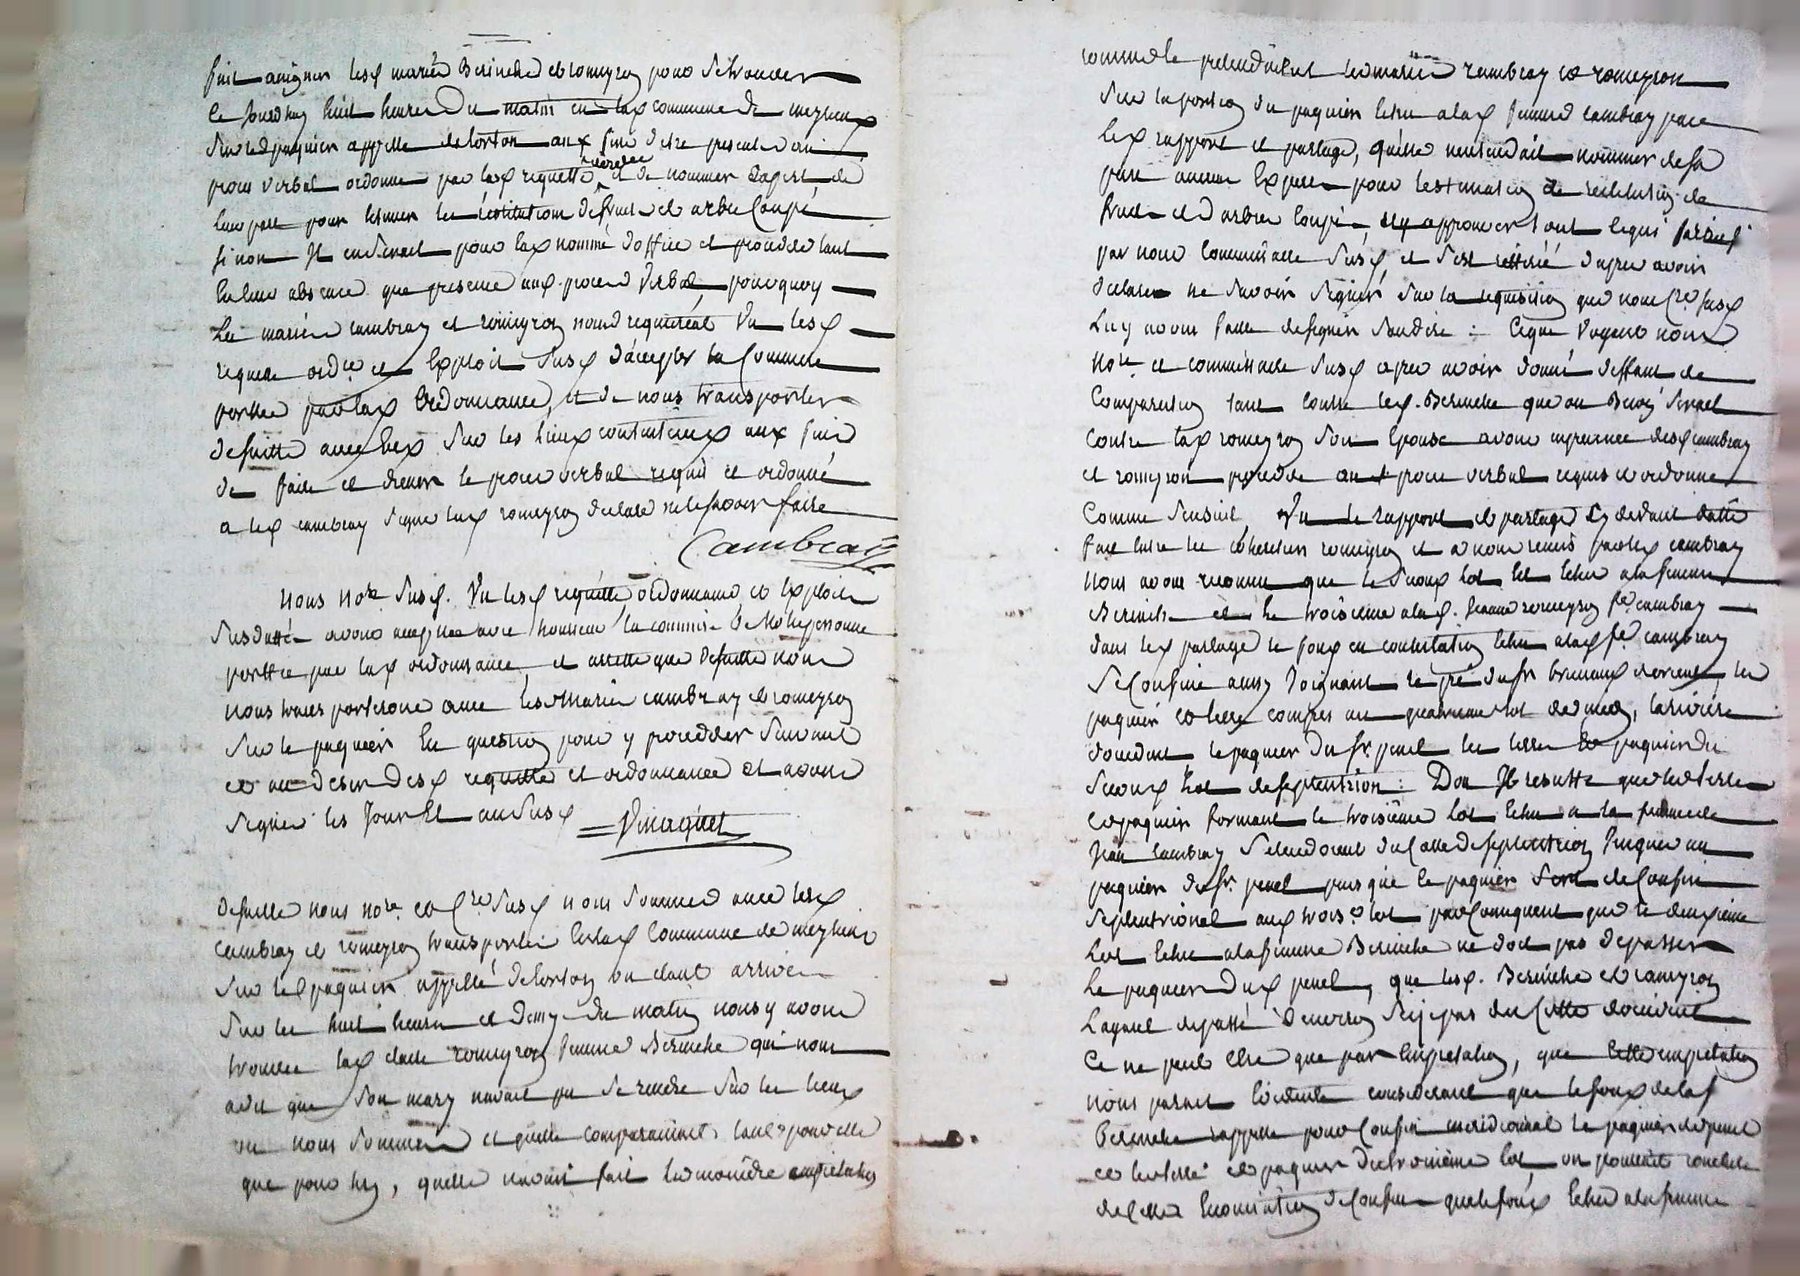 fait assigner lesd mariés Berinche et romeyron pour se trouver
le jourdhuy huit heures du matin en lad commune de meylieu
sur led paquier appellé delorton aux fins d'etre present au
proces verbal ordonné par lad requette et de nommer expert de
leur part pour estimer la restitution de fruit et arbre coupé
sinon il en seroit pour lad nommé d'office et procedé tant
en leur absence que presence aud. proces verbal, pourquoy
les mariés cambray et romeyron nous requierent vu lesd
requete ordce et exploit susd d'accepter la commission
portée par lad ordonnance, et de nous transporter
de suitte avec eux sur les lieux contentieux aux fins
de faire et dresser le proces verbal requis et ordonné
a led cambray signé lad romeyron declare ne le savoir faire
Cambray
Nous nore susd. Vu lesd requette ordonnance et exploit
susdatté avons accepté avec honneur la commission
portée par lad ordonnance, et arretté que de suitte nous
nous transporterons avec les mariés cambray et romeyron
sur le paquier en question pour y proceder suivant
et au desir desd requette et ordonnance et avons
signé les jour et an susd
De suitte nous nore et Cre susd nous sommes avec lesd
cambray et romeyron transportés en lad commune de meylieu
sur led paquier appellé delorton ou etant arrivé
sur les huit heures et demy du matin nous y avons
trouvé lad claude romeyron femme Berinche qui nous
a dit que son mary n'avoit pu se rendre sur les lieux
ou nous sommes et quelle comparaissoit tant pour elle
que pour luy, quelle n'avoit fait la moindre empietation
comme le pretendoient les mariés cambray et romeyron
sur la portion du paquier echu a lad femme cambray par
led rapport et partage, qu'elle n'entendait nommer de sa
part aucun expert pour l'estimation de restitution de
fruit et d'arbre coupé ny approuver tout ce qui
par nous commissaire susd, et s'est retirée d'apres avoir
declaré ne savoir signer sur la requisition que nous Cre susd
luy avons faite de signer son dire : Ce que voyant nous
Nore et commissaire susd apres avoir donné deffaut de
comparution tant contre led. Berinche que
contre lad romeyron son epouse avons en presence desd cambray
et romeyron procédé au proces verbal requis et ordonné
comme s'ensuit, Vu le rapport et partage cy devant datté
fait entre les coheritiers romeyron et a nous remis par led cambray
nous avons reconnu que le second lot est echu a la femme
Berinche et le troisieme a lad. Jeanne romeyron fe cambray
dans led partage le fond en contestation echu a lad fe cambray
se confine ainsy joignant le pré du sr d'orient les
paquier et terre compris au quatrieme lot de midy, la riviere
d'occident le paquier du sr penel les terre et paquier du
second lot de septentrion : Dou il resulte que les terre
et paquier formant le troisieme lot echu a la femme de
Jean Cambray s'etendoient du cotté de septentrion jusques au
paquier du sr penel puis que le paquier sert de confin
septentrional aud trois.e lot par consequent que le deuxieme
lot echu a la femme Berinche ne doit pas depasser
le paquier dud penel, que lesd. Berinche et romeyron
l'ayant depassé d'environ six pas du cotté d'occident
ce ne peut etre que par empietation, que cette empietation
nous parait evidente considerant que le fond de lad
Berinche rappelle pour confin meridional le paquier de penel
et les terre et paquier du troisieme lot on pourrait conclure
de cette enonciation de confin que le fond echu a la femme